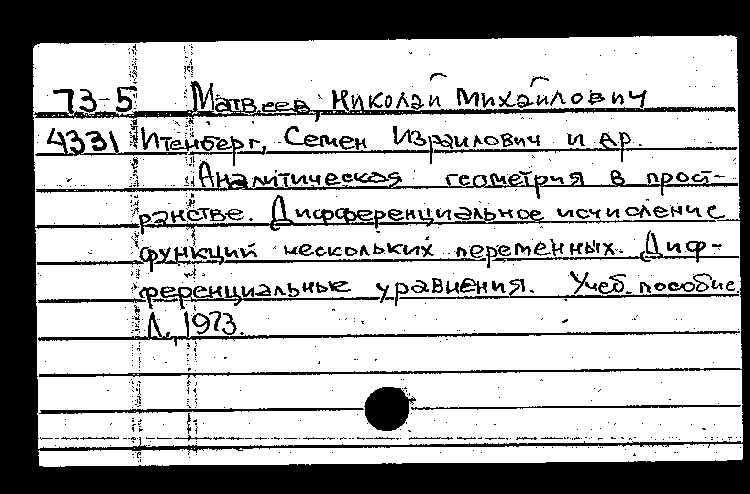 73-5 Матвеев, Николай Михайлович
4331 Итенберг, Семен Израилович и др.
Аналитическая геометрия в прост-
ранстве. Дифференциальное исчисление
функций нескольких переменных. Диф-
ференциальные уравнения. Учеб. пособие.
Л., 1973.